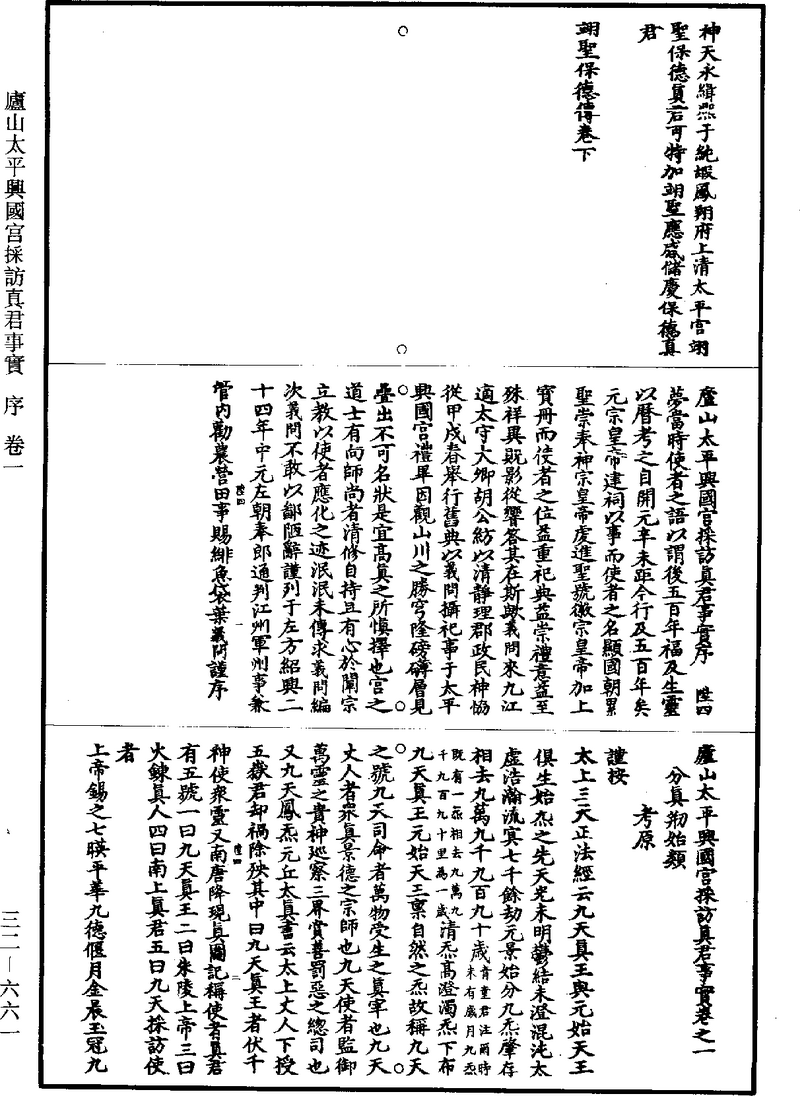 廬山太平興國宮採訪真君事實 序 卷一
三二—六六一
神天永緝熙于純嘏鳳翔府上清太平宮翊
聖保德真君可特加翊聖應感儲慶保德真
君
翊聖保德傳卷下
廬山太平興國宮採訪真君事實序 陛四
夢當時使者之語以謂後五百年福及生靈
以曆考之自開元辛未距今行及五百年矣
元宗皇帝建祠以事而使者之名顯國朝累
聖崇奉神宗皇帝虔進聖號徽宗皇帝加上
寶冊而使者之位益重祀典益崇禮意益至
殊祥異貺影從響答其在斯歟義問來九江
適太守大卿胡公紡以清靜理郡政民神協
從甲戌春舉行舊典以義問攝祀事于太平
興國宮禮畢因觀山川之勝穹隆磅礴層見
疊出不可名狀是宜高真之所慎擇也宮之
道士有向師尚者清修自持且有心於闡宗
立教以使者應化之迹泯泯未傳求義問編
次義問不敢以鄙陋辭謹列于左方紹興二
十四年中元左朝奉郎通判江州軍州事兼
管內勸農營田事賜緋魚袋葉義問謹序
陛四 一
廬山太平興國宮採訪真君事實卷之一
分真剏始類
考原
謹按
太上三天正法經云九天真王與元始天王
俱生始炁之先天光未明鬱結未澄混沌太
虛浩瀚流㝠七千餘劫元景始分九炁肇存
相去九萬九千九百九十歲青童君注爾時未有歲月九炁
既有一炁相去九萬九千九百九十里為一歲清炁高澄濁炁下布
九天真王元始天王稟自然之炁故稱九天
之號九天司命者萬物受生之真宰也九天
丈人者眾真景德之宗師也九天使者監御
萬靈之貴神巡察三界賞善罰惡之總司也
又九天鳳炁元丘太真書云太上丈人下授
五嶽君却禍除殃其中曰九天真王者伏千
神使眾靈又南唐降現真圖記稱使者真君
陛四 二
有五號一曰九天真王二曰朱陵上帝三曰
火鍊真人四曰南上真君五曰九天採訪使
者
上帝錫之七暎平華九德偃月金晨玉冠九